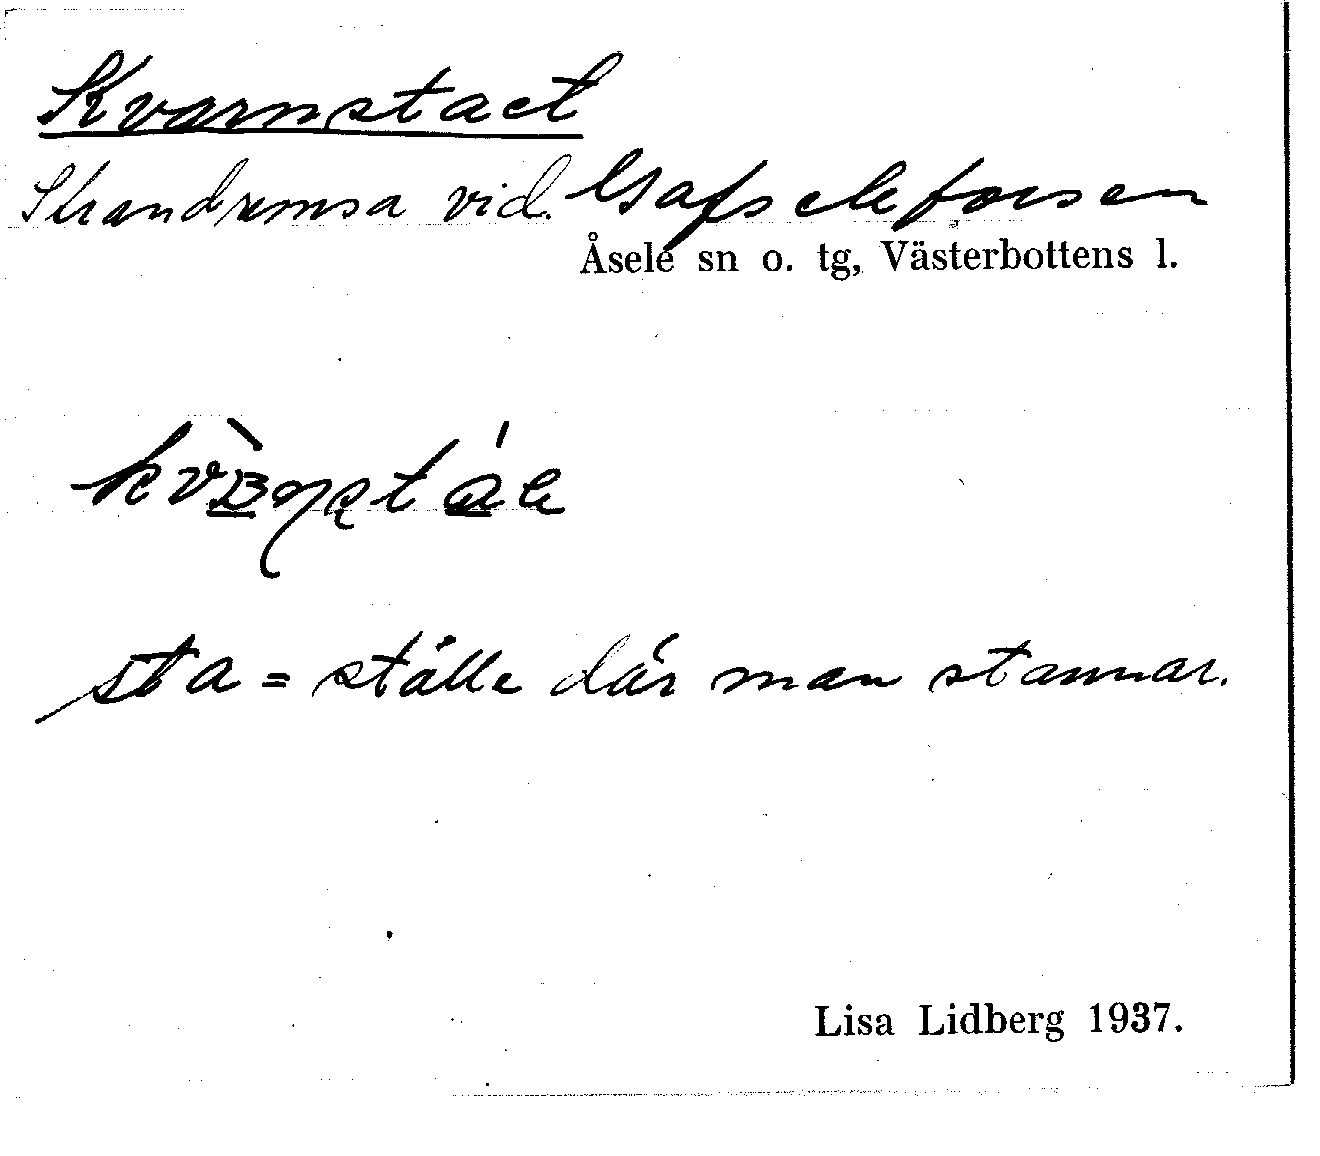 Kvarnstaet
Strandremsa vid Gafseleforsen
Åsele sn o. tg, Västerbottens l.
sta = ställe där man stannar.
Lisa Lidberg 1937.